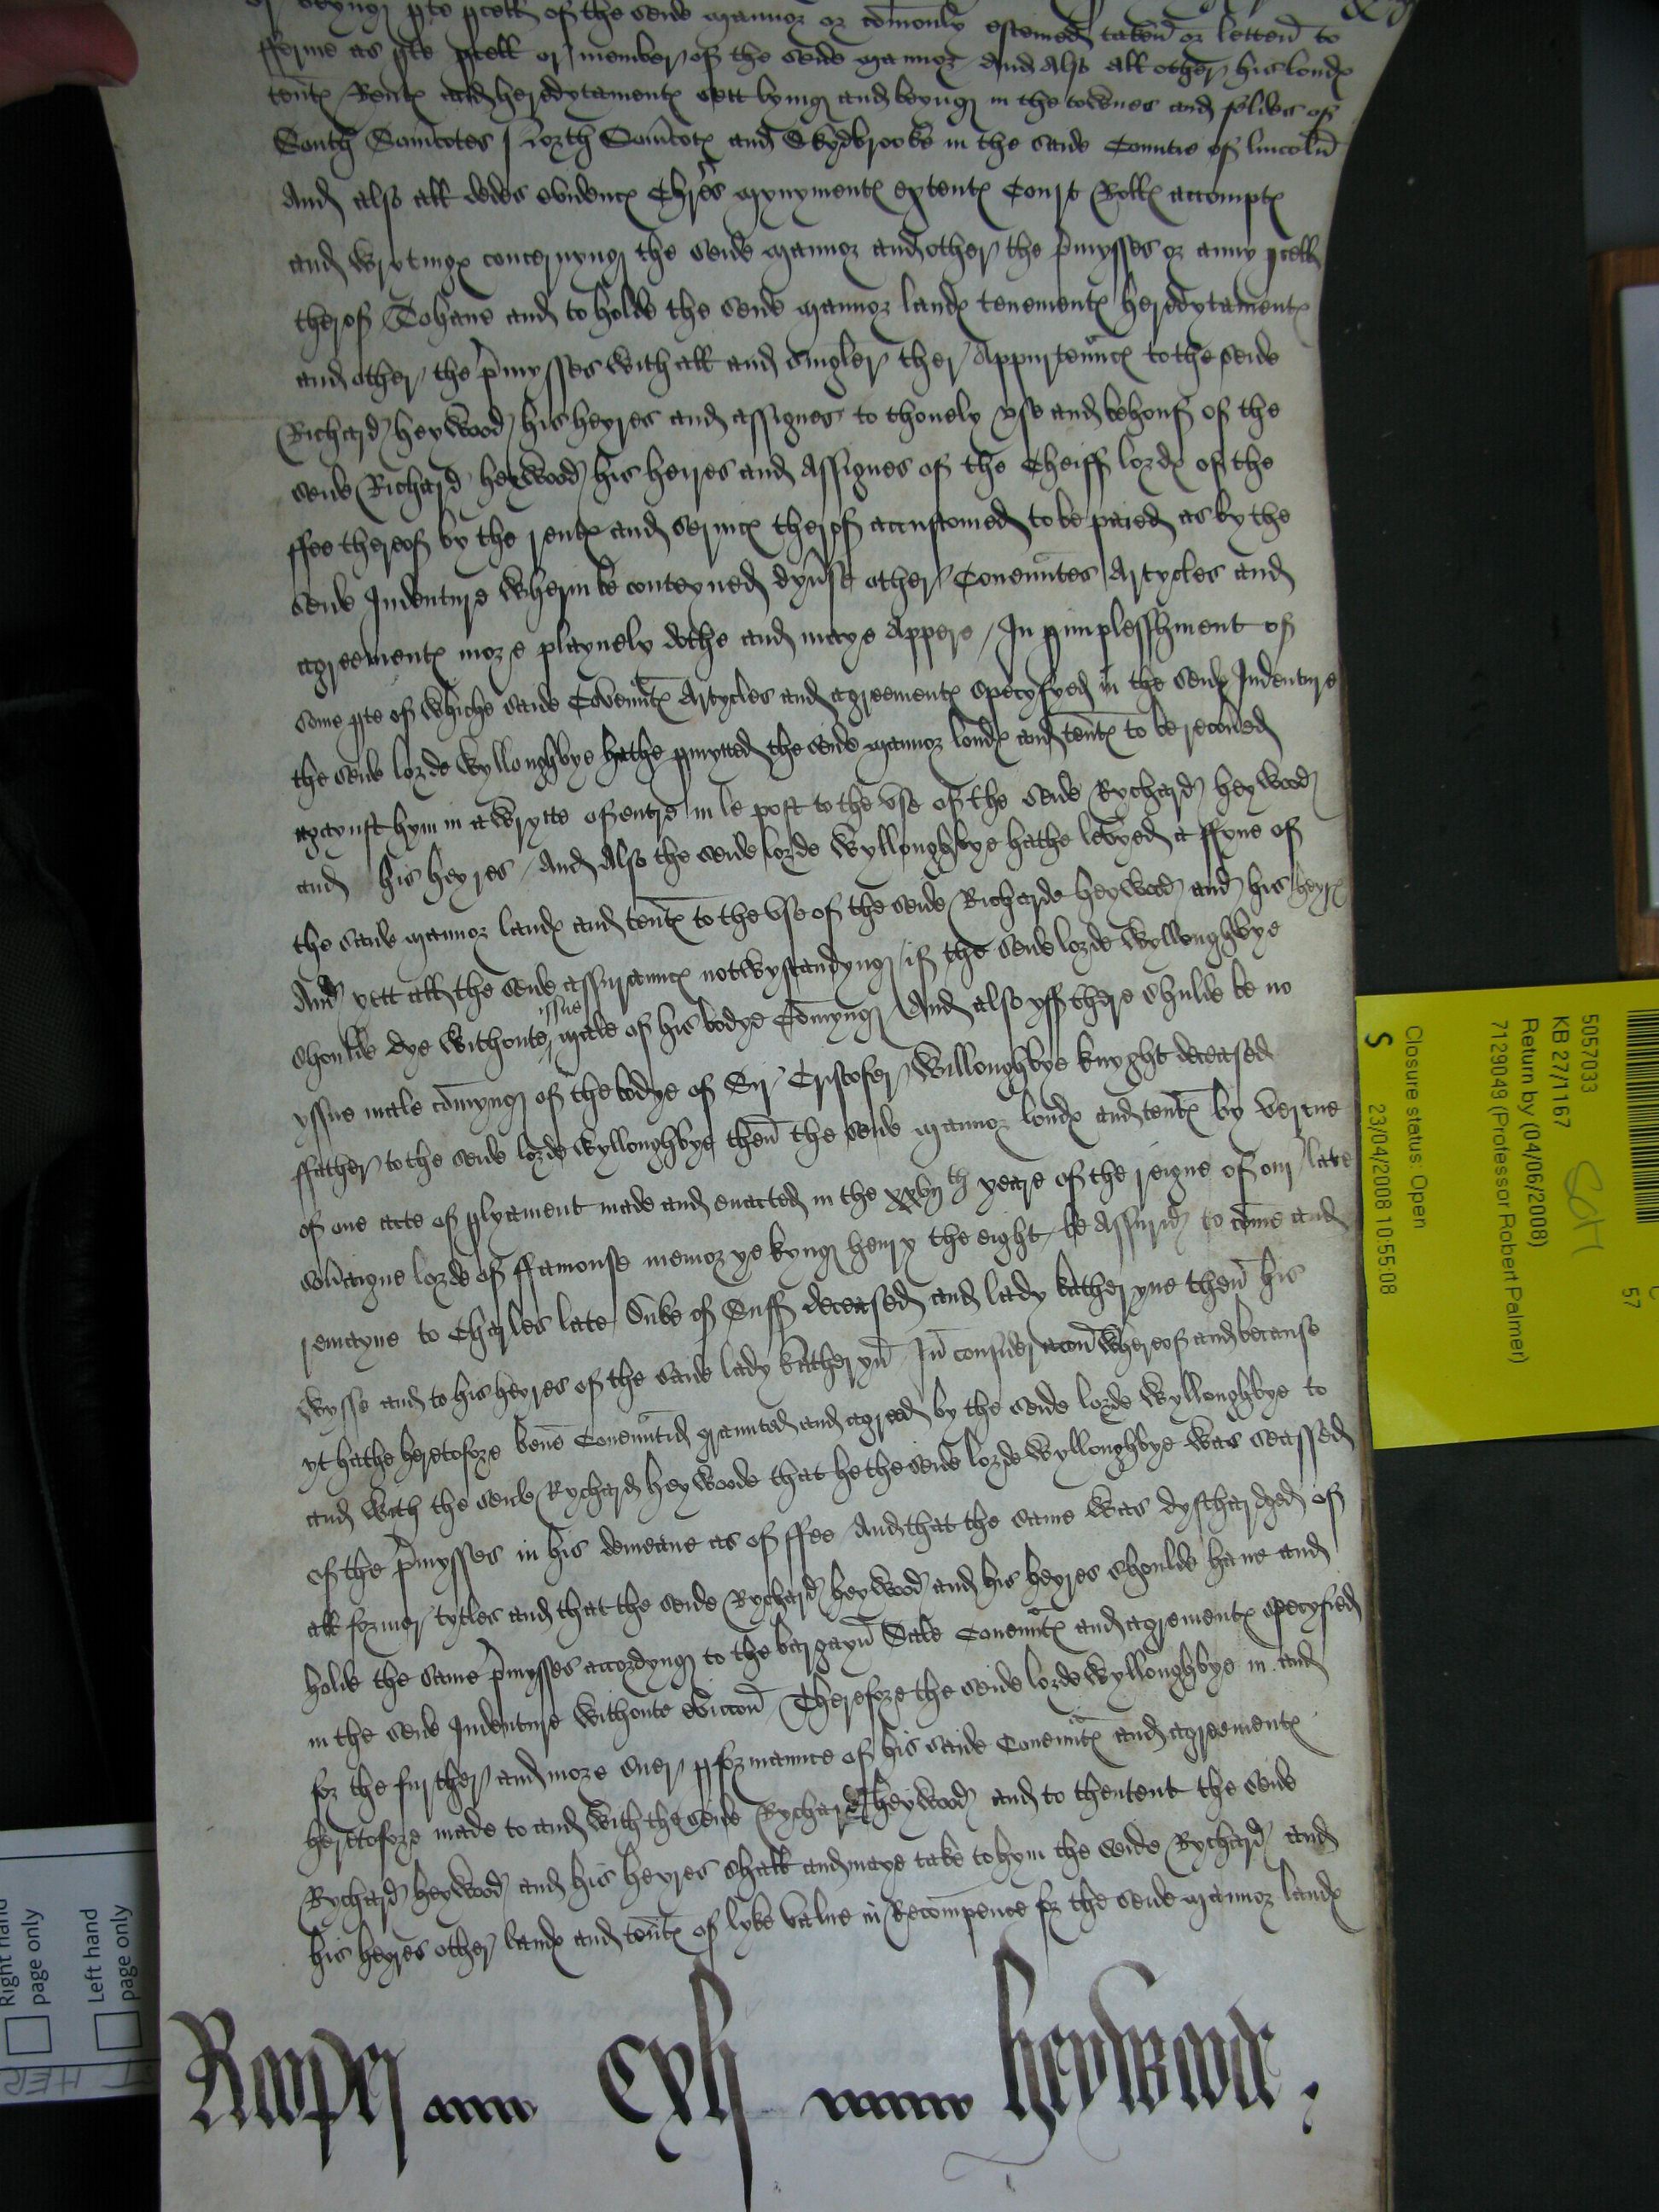 of beyng pte pcell of the seide mannor or comonly estemed taken or letten to
fferme as pte pcell or member of the seide mannor And Also all other his londs
tents Rents and hereddytaments sett lyeing and beyng in the townes and feldes of
South Somcotes North Somcots and Skydbrooke in the saide Countie of lincoln
And also all dedes evidencs Chres mynyments extents Court Rolls accompts
and wrytings concernyng the seide mannor and other the pmysses or anny pcell
therof To haue and to holde the seide mannor lands tenements hereddytaments
and other the pmysses with all and singler ther Appurtenncs to the seide
Richard heywood his heyres and assignes to thonely vse and behouf of the
seide Richard heywood his heires and Assignes of the Cheiff lords of the
ffee thereof by the rents and seruics therof accustomed to be paied as by the
seide Indenture wherin be conteyned dyuse other Conenntes Artycles and
agreements more playnely dothe and maye Appere In pimplesshment of
some pte of whiche saide Covennts Artycles and agreements specyfyed in the seide Indenture
the seide lorde Wylloughbye hathe pmytted the seide mannor londs and tents to be recoued
agaynst hym in a wrytte of entre in le post to the vse of the seide Rychard heywood
and his heyres And Also the seide lorde Wylloughbye hathe levyed a ffyne of
the saide mannor lands and tents to the vse of the seide Richarde heywood and his heyrs
And yett all the seide assurauncs notwystandyng if the seide lorde Wylloughbye
shoulde dye withoute issue male of his bodye Comyng And also yff there shulde be no
yssue male comyng of the bodye of Sir Cristofer Willoughbye knyght deceased
ffather to the seide lorde Wylloughbye then the seide mannor londs and tents by vertue
of one acte of plyament made and enacted in the xxvijth yeare of the reigne of our late
soueraigne lorde of ffamouse memorye kyng henry the eight be Assurid to come and
remayne to Charles late Duke of Suff deceased and lady katheryne then his
wyffe and to his heyres of the saide lady katheryn In consideracon whereof and because
yt hathe heretofore bene Conenntid graunted and agreed by the seide lorde Wylloughbye to
and with the seide Rychard heywoode that he the seide lorde Wylloughbye was seassed
of the pmysses in his demeane as of ffee And that the same was dyscharged of
all former tytles and that the seide Rychard heywood and his heyres shoulde haue and
holde the same pmysses accordyng to the bargayn Sale Conennts and agrements specyfied
in the seide Indenture withoute eviccon Therefore the seide lorde Wylloughbye in and
for the further and more suer pformaunce of his saide Conennts and agreements
heretofore made to and with the seide Rychard heywood and to thentent the seide
Rychard heywood and his heyres shall and maye take to hym the seide Rychard and
his heyres other lands and tents of lyke value in Recompence for the seide mannor lands
Roper Cxlj heywood
5057033
KB 27/1167
Return by (04/06/2008)
7129049 (Professor Robert Palmer)
Closure status: Open
S 23/04/2008 10:55:08
57
Right hand
page only
Left hand
page only